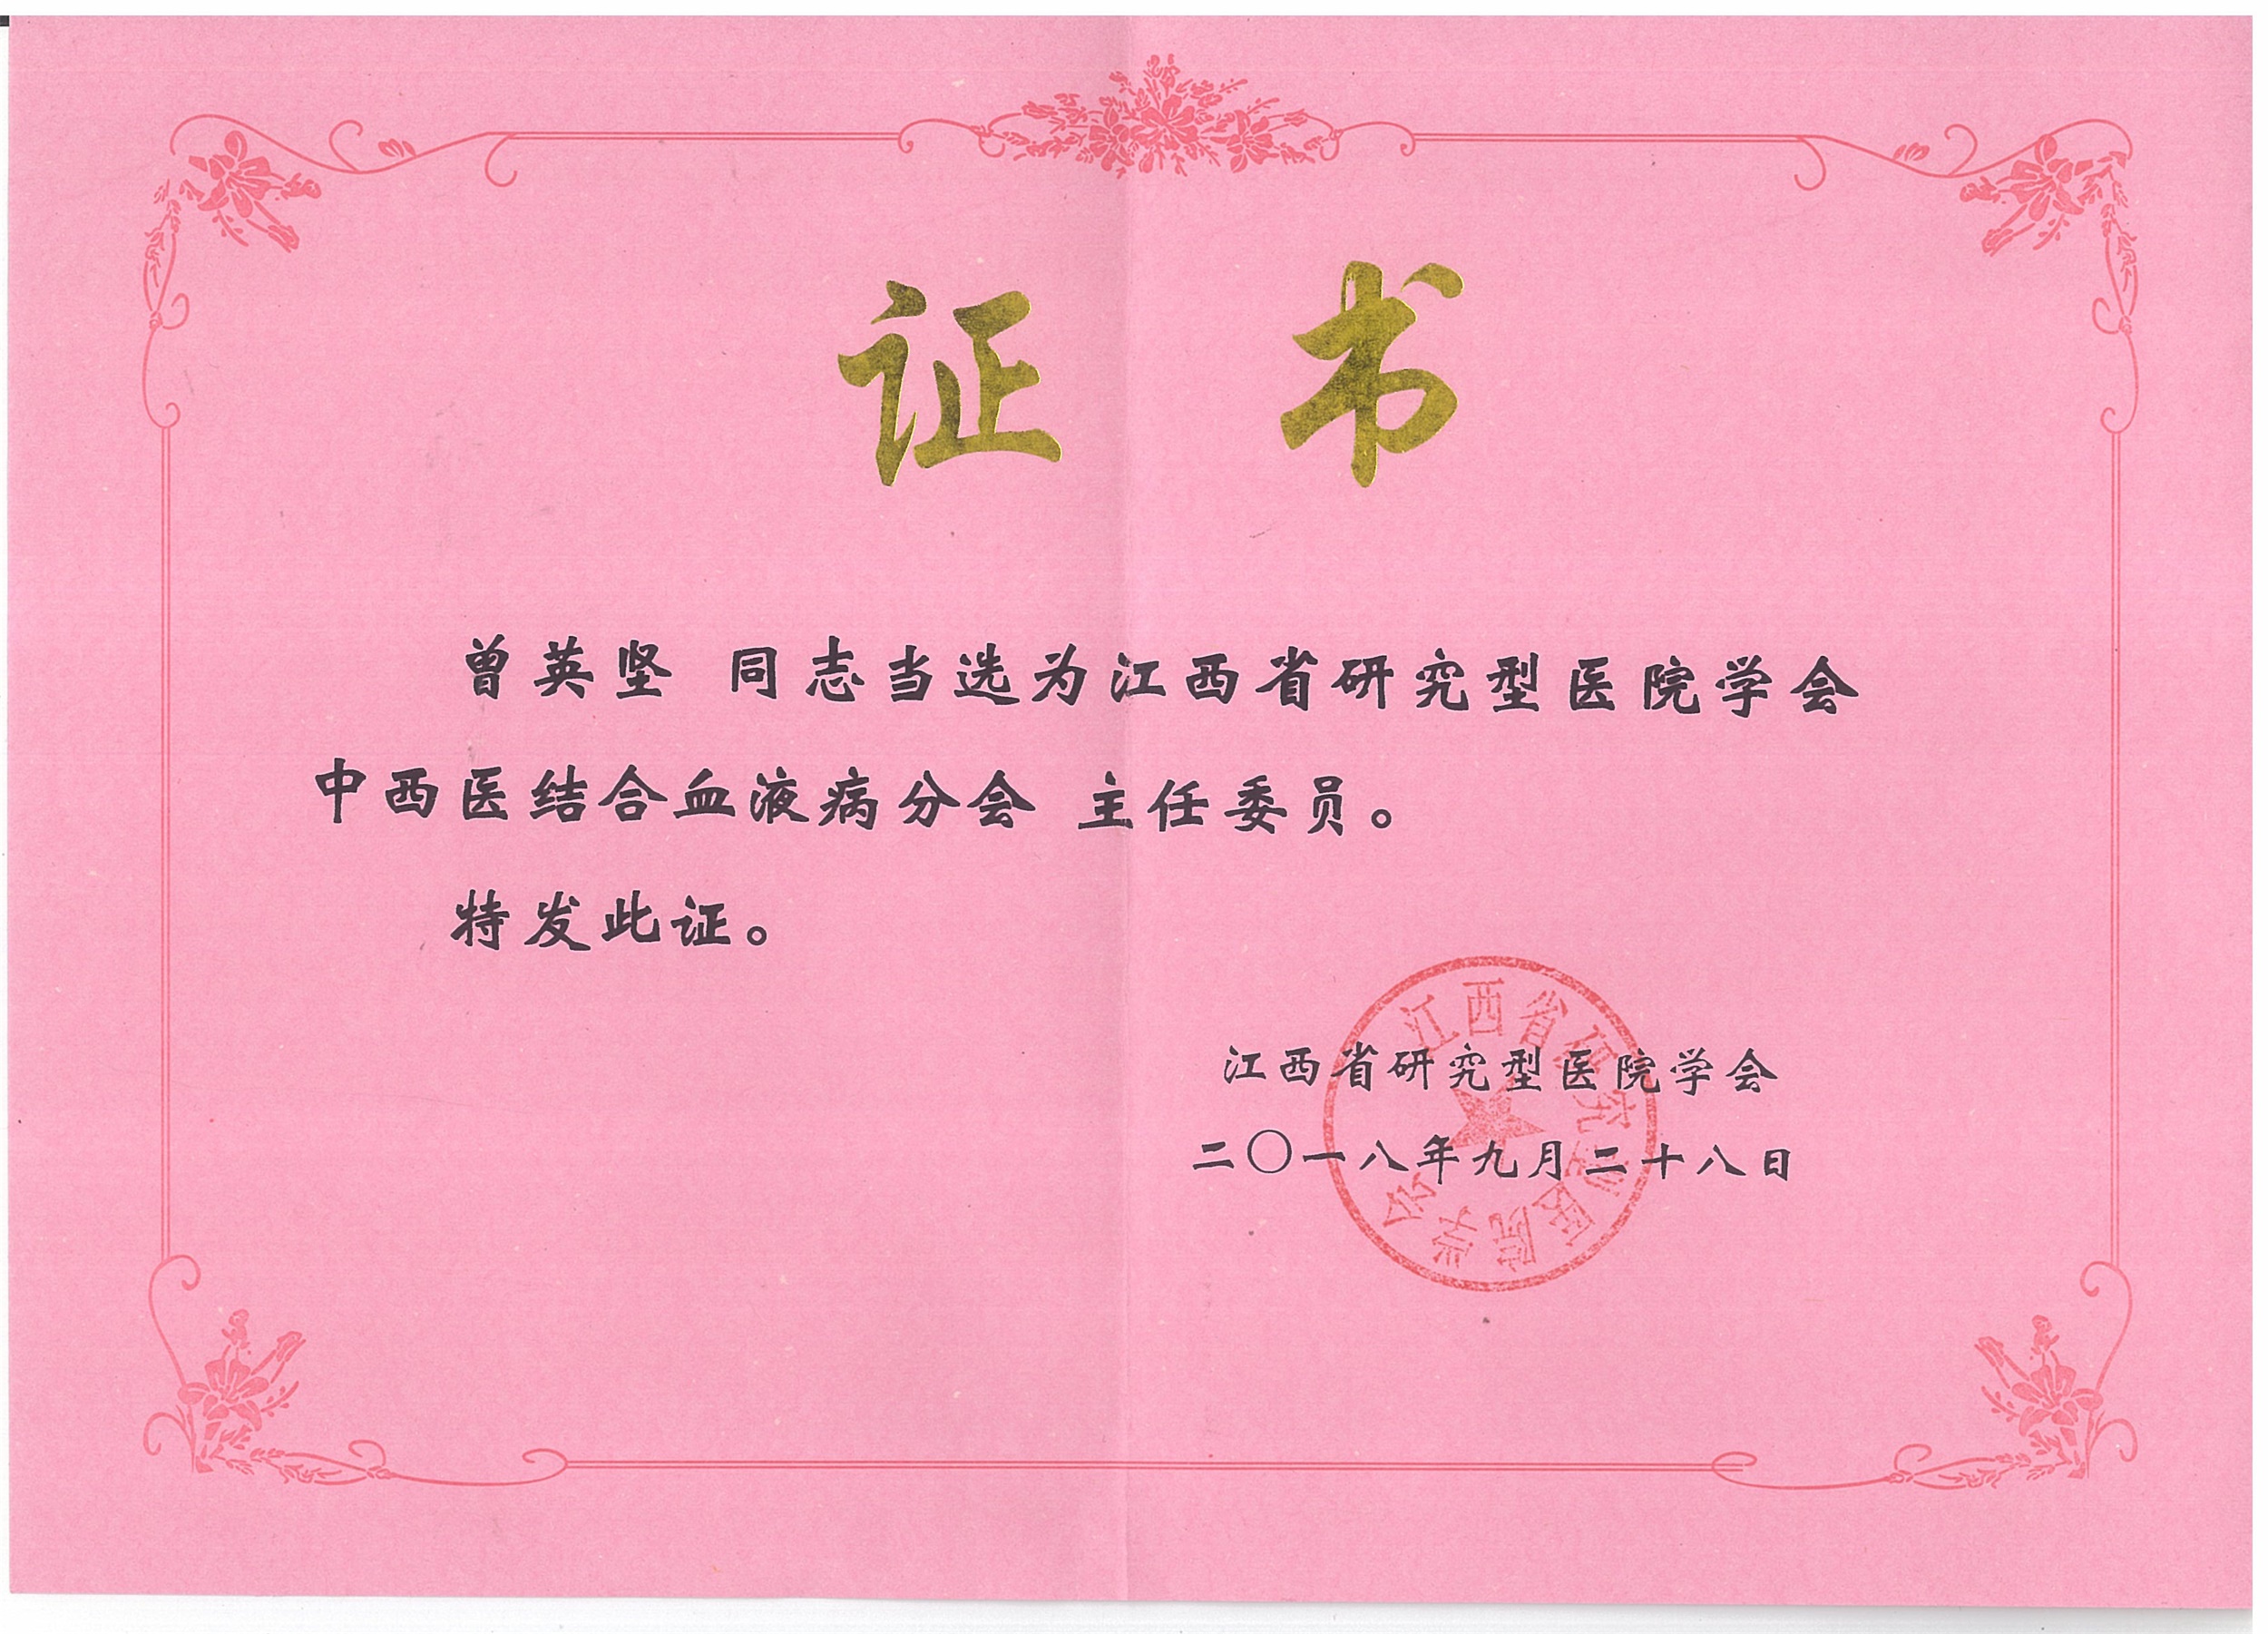 证书
曾英坚 同志当选为江西省研究型医院学会
中西医结合血液病分会 主任委员。
特发此证。
江西省研究型医院学会
二〇一八年九月二十八日
江西省研究型医院学会